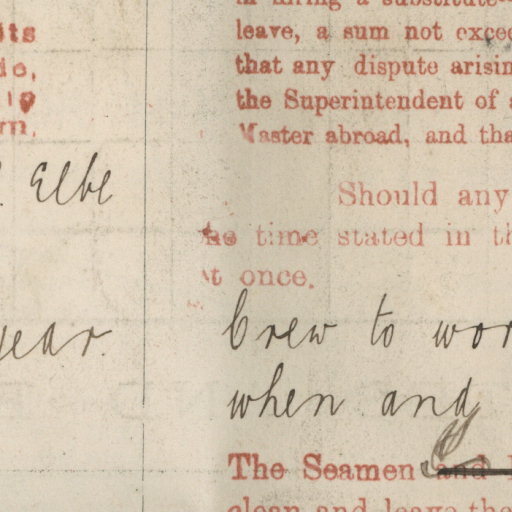 in hiring a substitute
leave, a sum not excee
that any dispute arisin
the Superintendent of a
Master abroad, and tha
Elbe
Should any
the time stated in th
at once.
year.
Crew to wor
when and
The Seamen and
clean and leave the